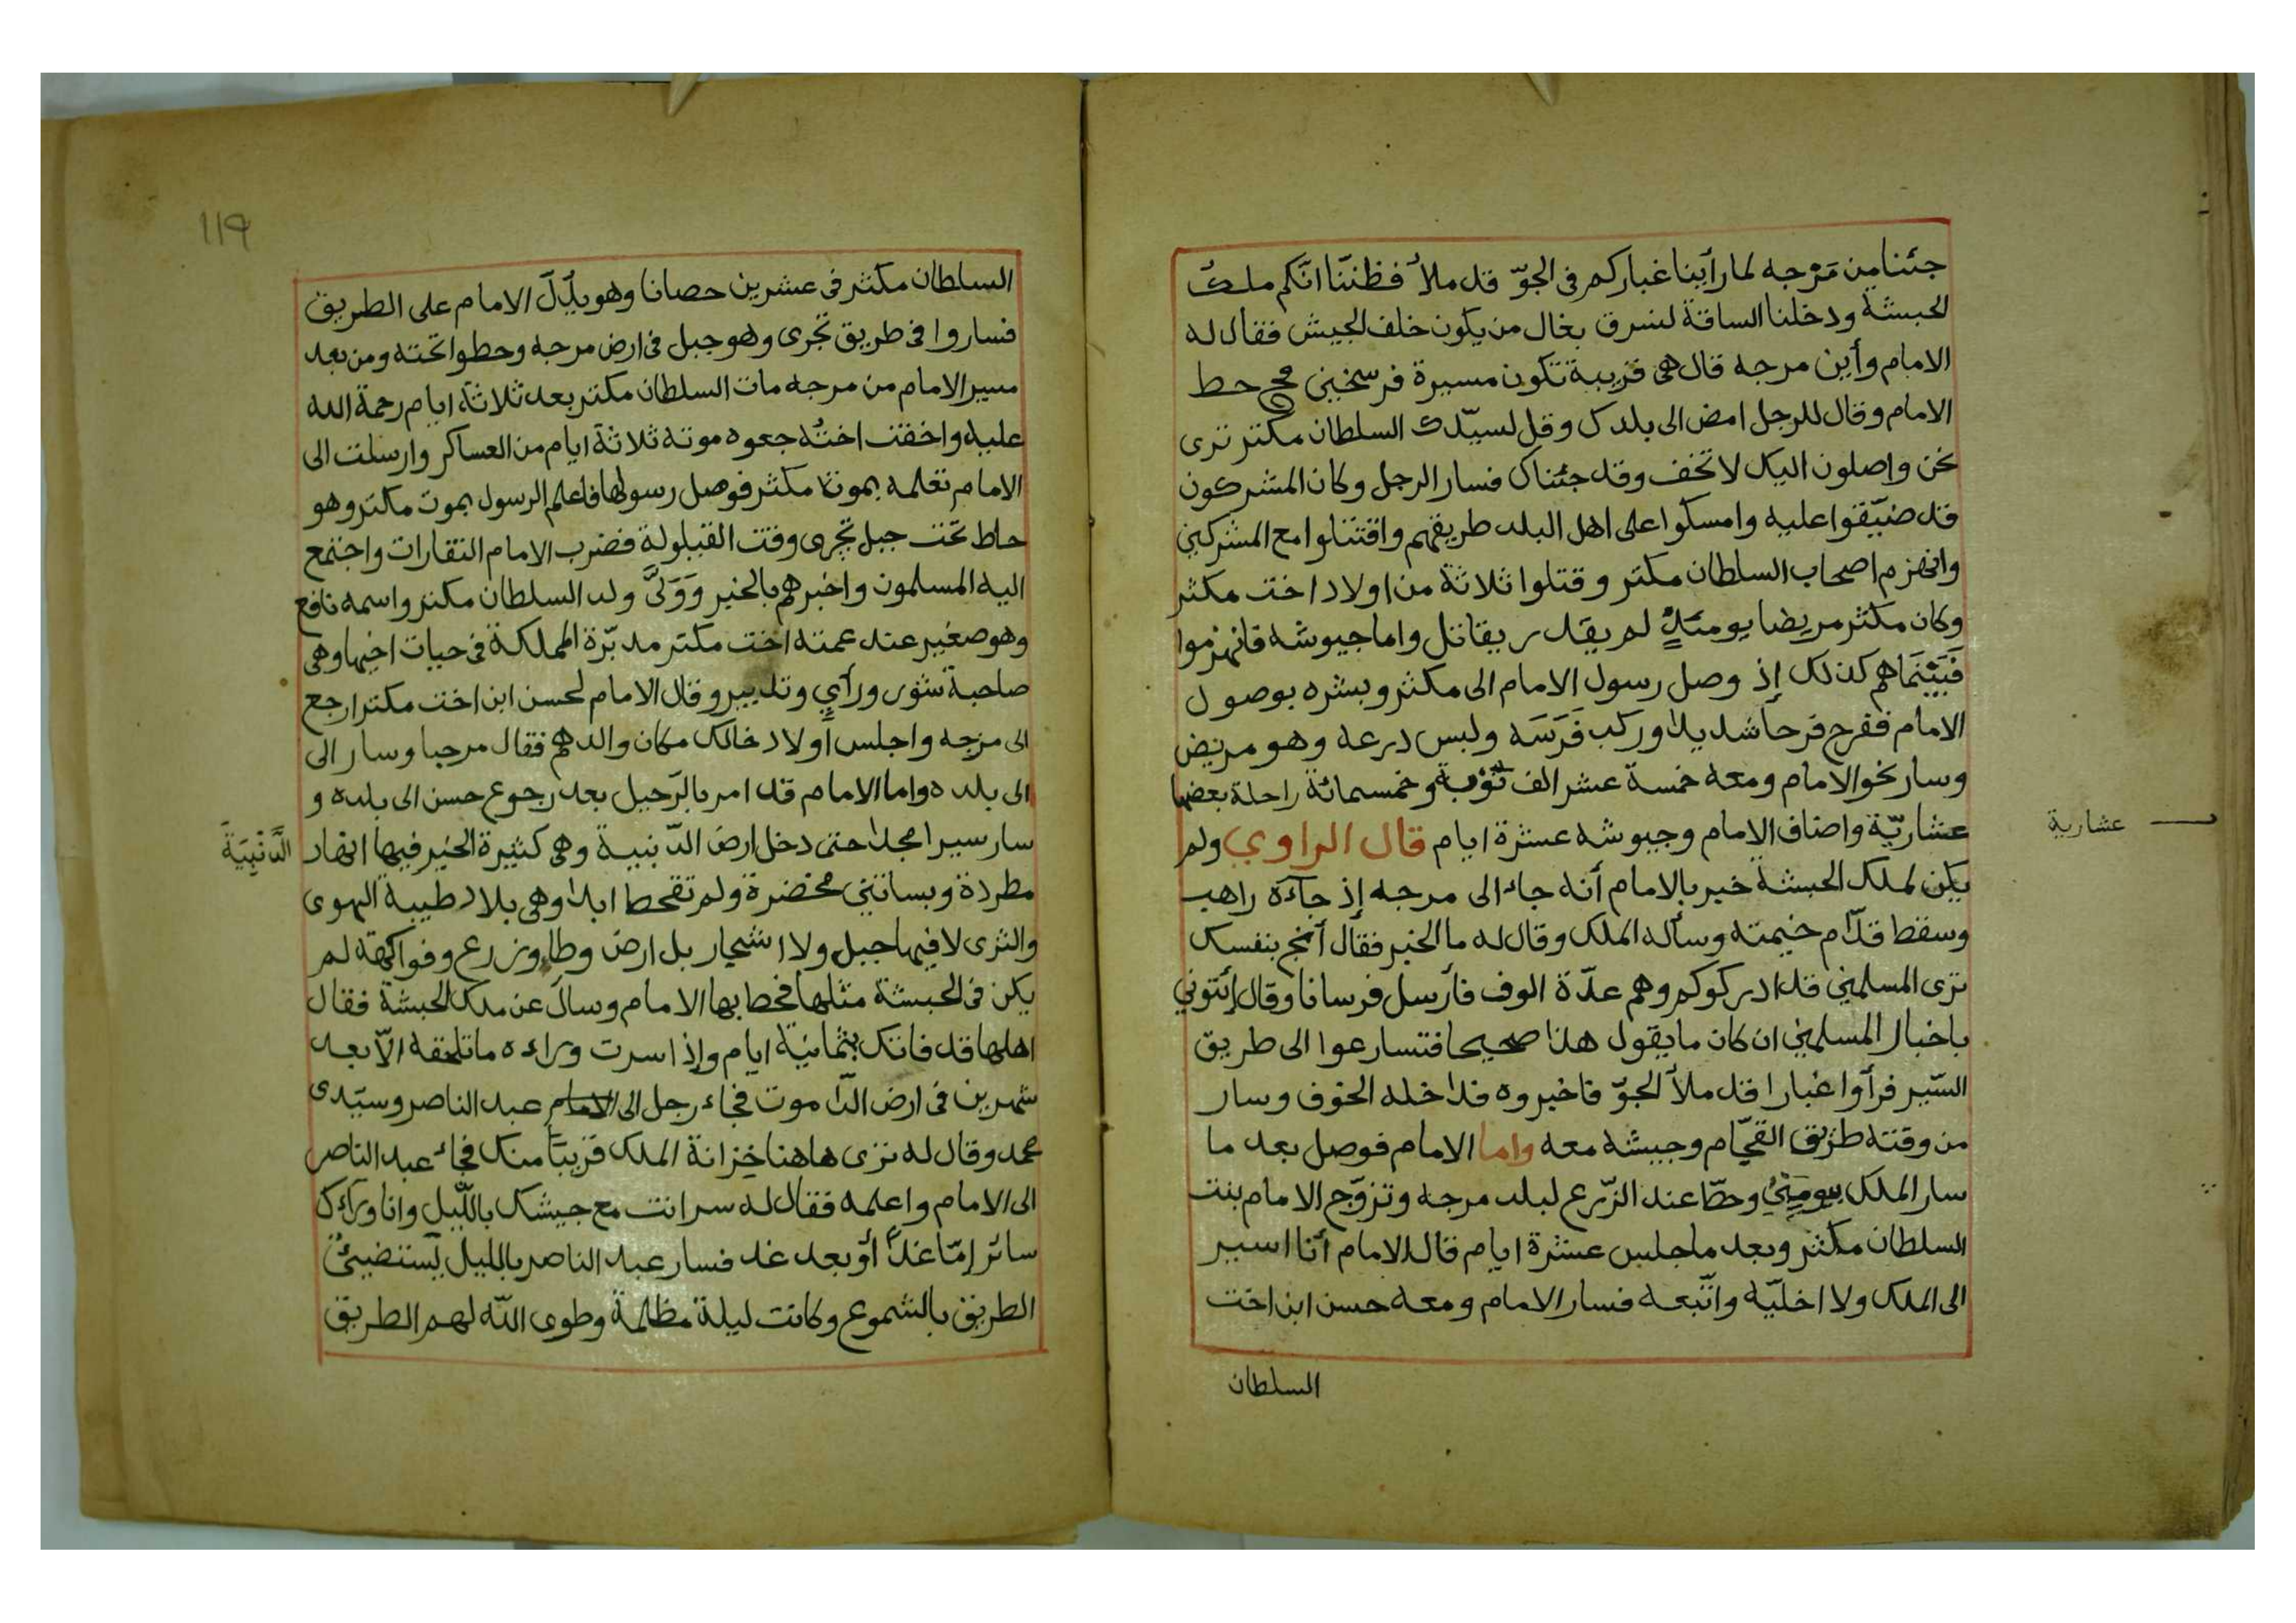 جئنا من مَرْجه لما رأينا غباركم في الجوّ قد ملأ فظننّا انّكم ملك
الحبشة ودخلنا الساقة لنسرق بغال من يكون خلف الجيش فقال له
الامام وأين مرجه قال هي قريبة تكون مسيرة فرسخين حط
الامام وقال للرجل امض الى بلدك وقل لسيّدك السلطان مكثر ترى
نحن واصلون اليك لا تخف وقد جئناك فسار الرجل وكان المشركون
قد ضيّقوا عليه وامسكوا على اهل البلد طريقهم واقتتلوا مع المشركين
وانهزم اصحاب السلطان مكثر وقتلوا ثلاثة من اولاد اخت مكثر
وكان مكثر مريضا يومئذٍ لم يقدر يقاتل واما جيوشه فانهزموا
فَبَيْنَمَا هم كذلك إذ وصل رسول الامام الى مكثر وبشره بوصول
الامام ففرح فرحا شديدا وركب فَرَسَه ولبس درعه وهو مريض
وسار نحو الامام ومعه خمسة عشر الف وخمسمائة راحلة بعضها
عشاريّة واضاف الامام وجيوشه عشرة ايام قال الراوي ولم
يكن لملك الحبشة خبر بالامام أنه جاء الى مرجه إذ جآءه راهب
وسقط قدّام خيمته وسأله الملك وقال له ما الخبر فقال أنج بنفسك
ترى المسلمين قد ادركوكم وهم عدّة الوف فأرسل فرسانا وقال إئتوني
باخبار المسلمين ان كان ما يقول هذا صحيحا فتسارعوا الى طريق
السّير فرأوا غبارا قد ملأ الجوّ فاخبروه فداخله الخوف وسار
من وقته طريق القجّام وجيشه معه واما الامام فوصل بعد ما
سار الملك بيومين وحطّ عند الزّرع لبلد مرجه وتزوّج الامام بنت
السلطان مكثر وبعد ما جلس عشرة ايام قال الامام أنا اسير
الى الملك ولا اخليّه واتّبعه فسار الامام ومعه حسن ابن اخت
السلطان
عشارية
119
السلطان مكثر في عشرين حصانا وهو يدّلّ الامام على الطريق
فساروا في طريق تجرى وهو جبل في ارض مرجه وحطوا تحته ومن بعد
مسير الامام من مرجه مات السلطان مكثر بعد ثلاثة ايام رحمة الله
عليه واخفت اختُه جعوه موته ثلاثة ايام من العساكر وارسلت الى
الامام تعلمه بموت مكثر فوصل رسولها فاعلم الرسول بموت مكثر وهو
حاط تحت جبل تجرى وقت القيلولة فضرب الامام النقارات واجتمع
اليه المسلمون واخبرهم بالخبر وَوَلىَّ ولد السلطان مكثر واسمه نافع
وهو صغير عند عمته اخت مكثر مدبّرة المملكة في حيات اخيها وهي
صاحبة شور ورأيٍ وتدبير وقال الامام لحسن ابن اخت مكثر ارجع
الى مرجه واجلس أولاد خالك مكان والدهم فقال مرحبا وسار الى
الى بلده واما الامام قد امر بالرّحيل بعد رجوع حسن الى بلده و
سار سيرا مجدا حتى دخل ارض الدّنبية وهي كثيرة الخير فيها انهار
مطردة وبساتين مخضرة ولم تقحط ابدا وهي بلاد طيبة الهوى
والثرى لا فيها جبل ولا اشجار بل ارض وطا وزرع وفواكهة لم
يكن في الحبشة مثلها فحط بها الامام وسأل عن ملك الحبشة فقال
اهلها قد فاتك بثمانية ايام وإذا سرت وراءه ما تلحقه الاّ بعد
شهرين في ارض الدّاموت فجاء رجل الى الامام عبد الناصر وسيّدى
محمد وقال له ترى هاهنا خزانة الملك قريبًا منك فجاء عبد الناصر
الى الامام واعلمه فقال له سر انت مع جيشك باللّيل وانا وراءك
سائر إمّا غدًا أو بعد غد فسار عبد الناصر بالليل يستضيئ
الطريق بالشموع وكانت ليلة مظلمة وطوى اللّه لهم الطريق
الدَّنْبِيَةَ